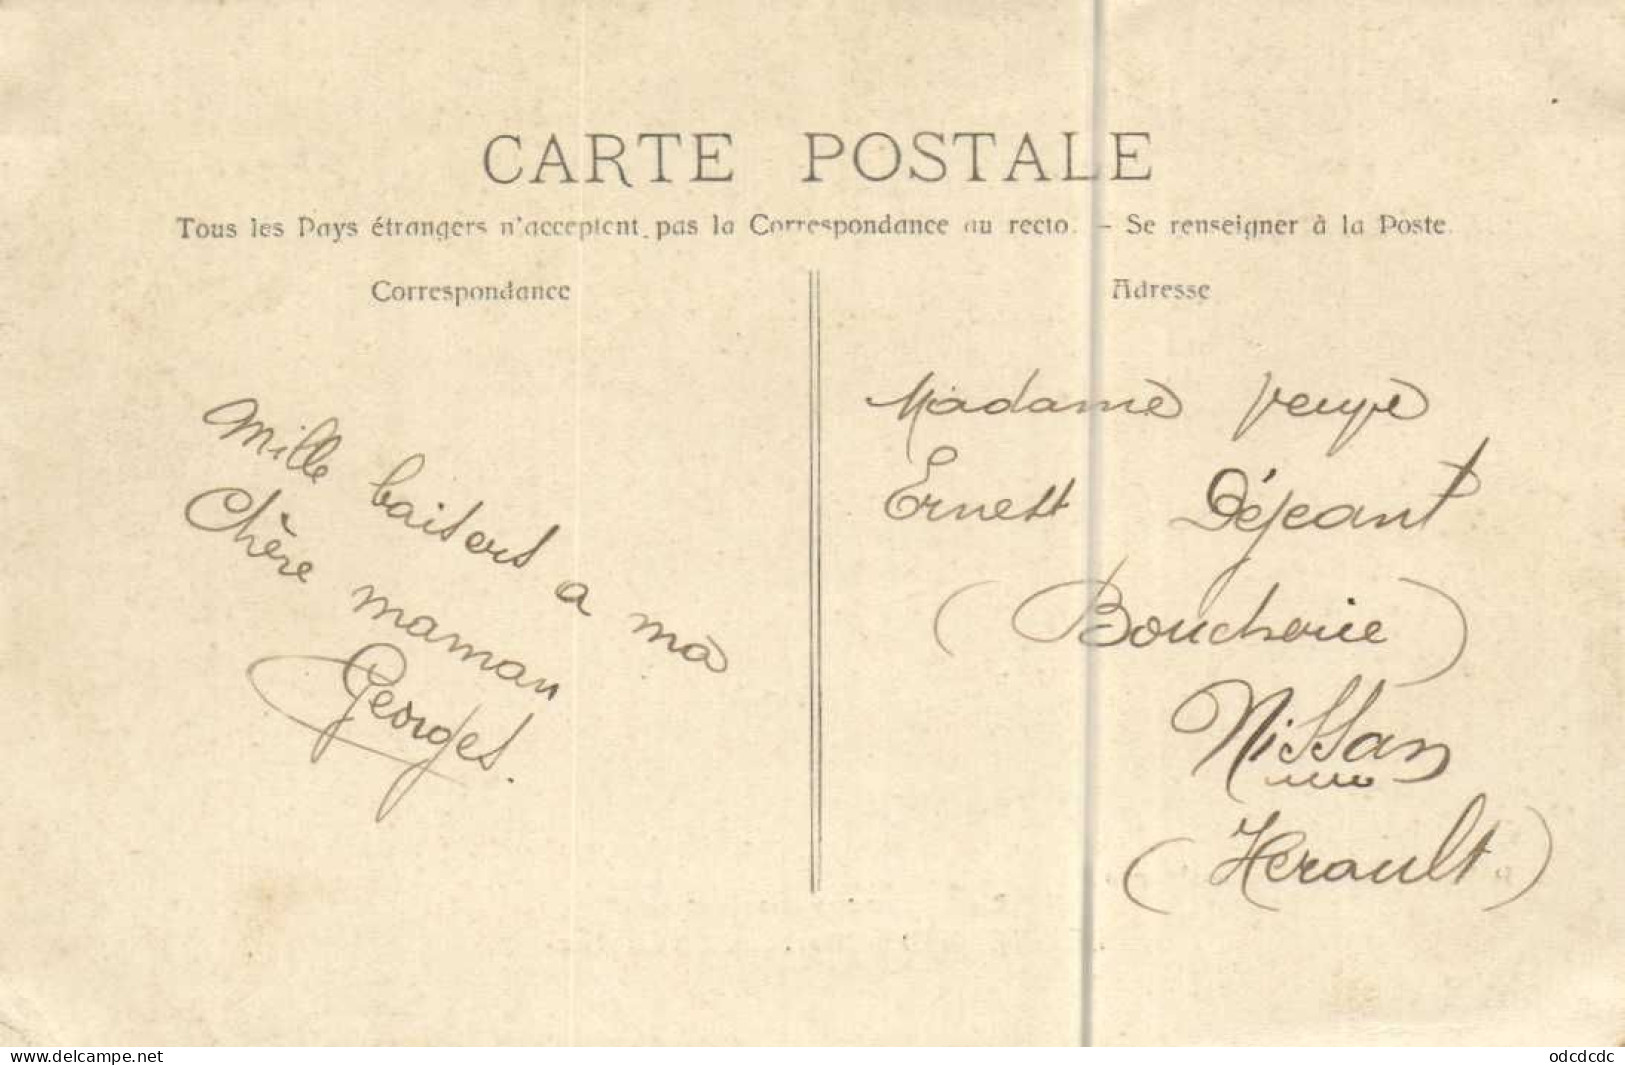 CARTE POSTALE
Tous les Pays étrangers n'acceptent pas la Correspondance au recto. — Se renseigner à la Poste.
Correspondance
Mille baisers a ma
Chère maman
Georges.
Adresse
Madame Veuve
Ernest Déjeant
(Boucherie)
Nissan
(Herault)
www.delcampe.net
odcdcdc